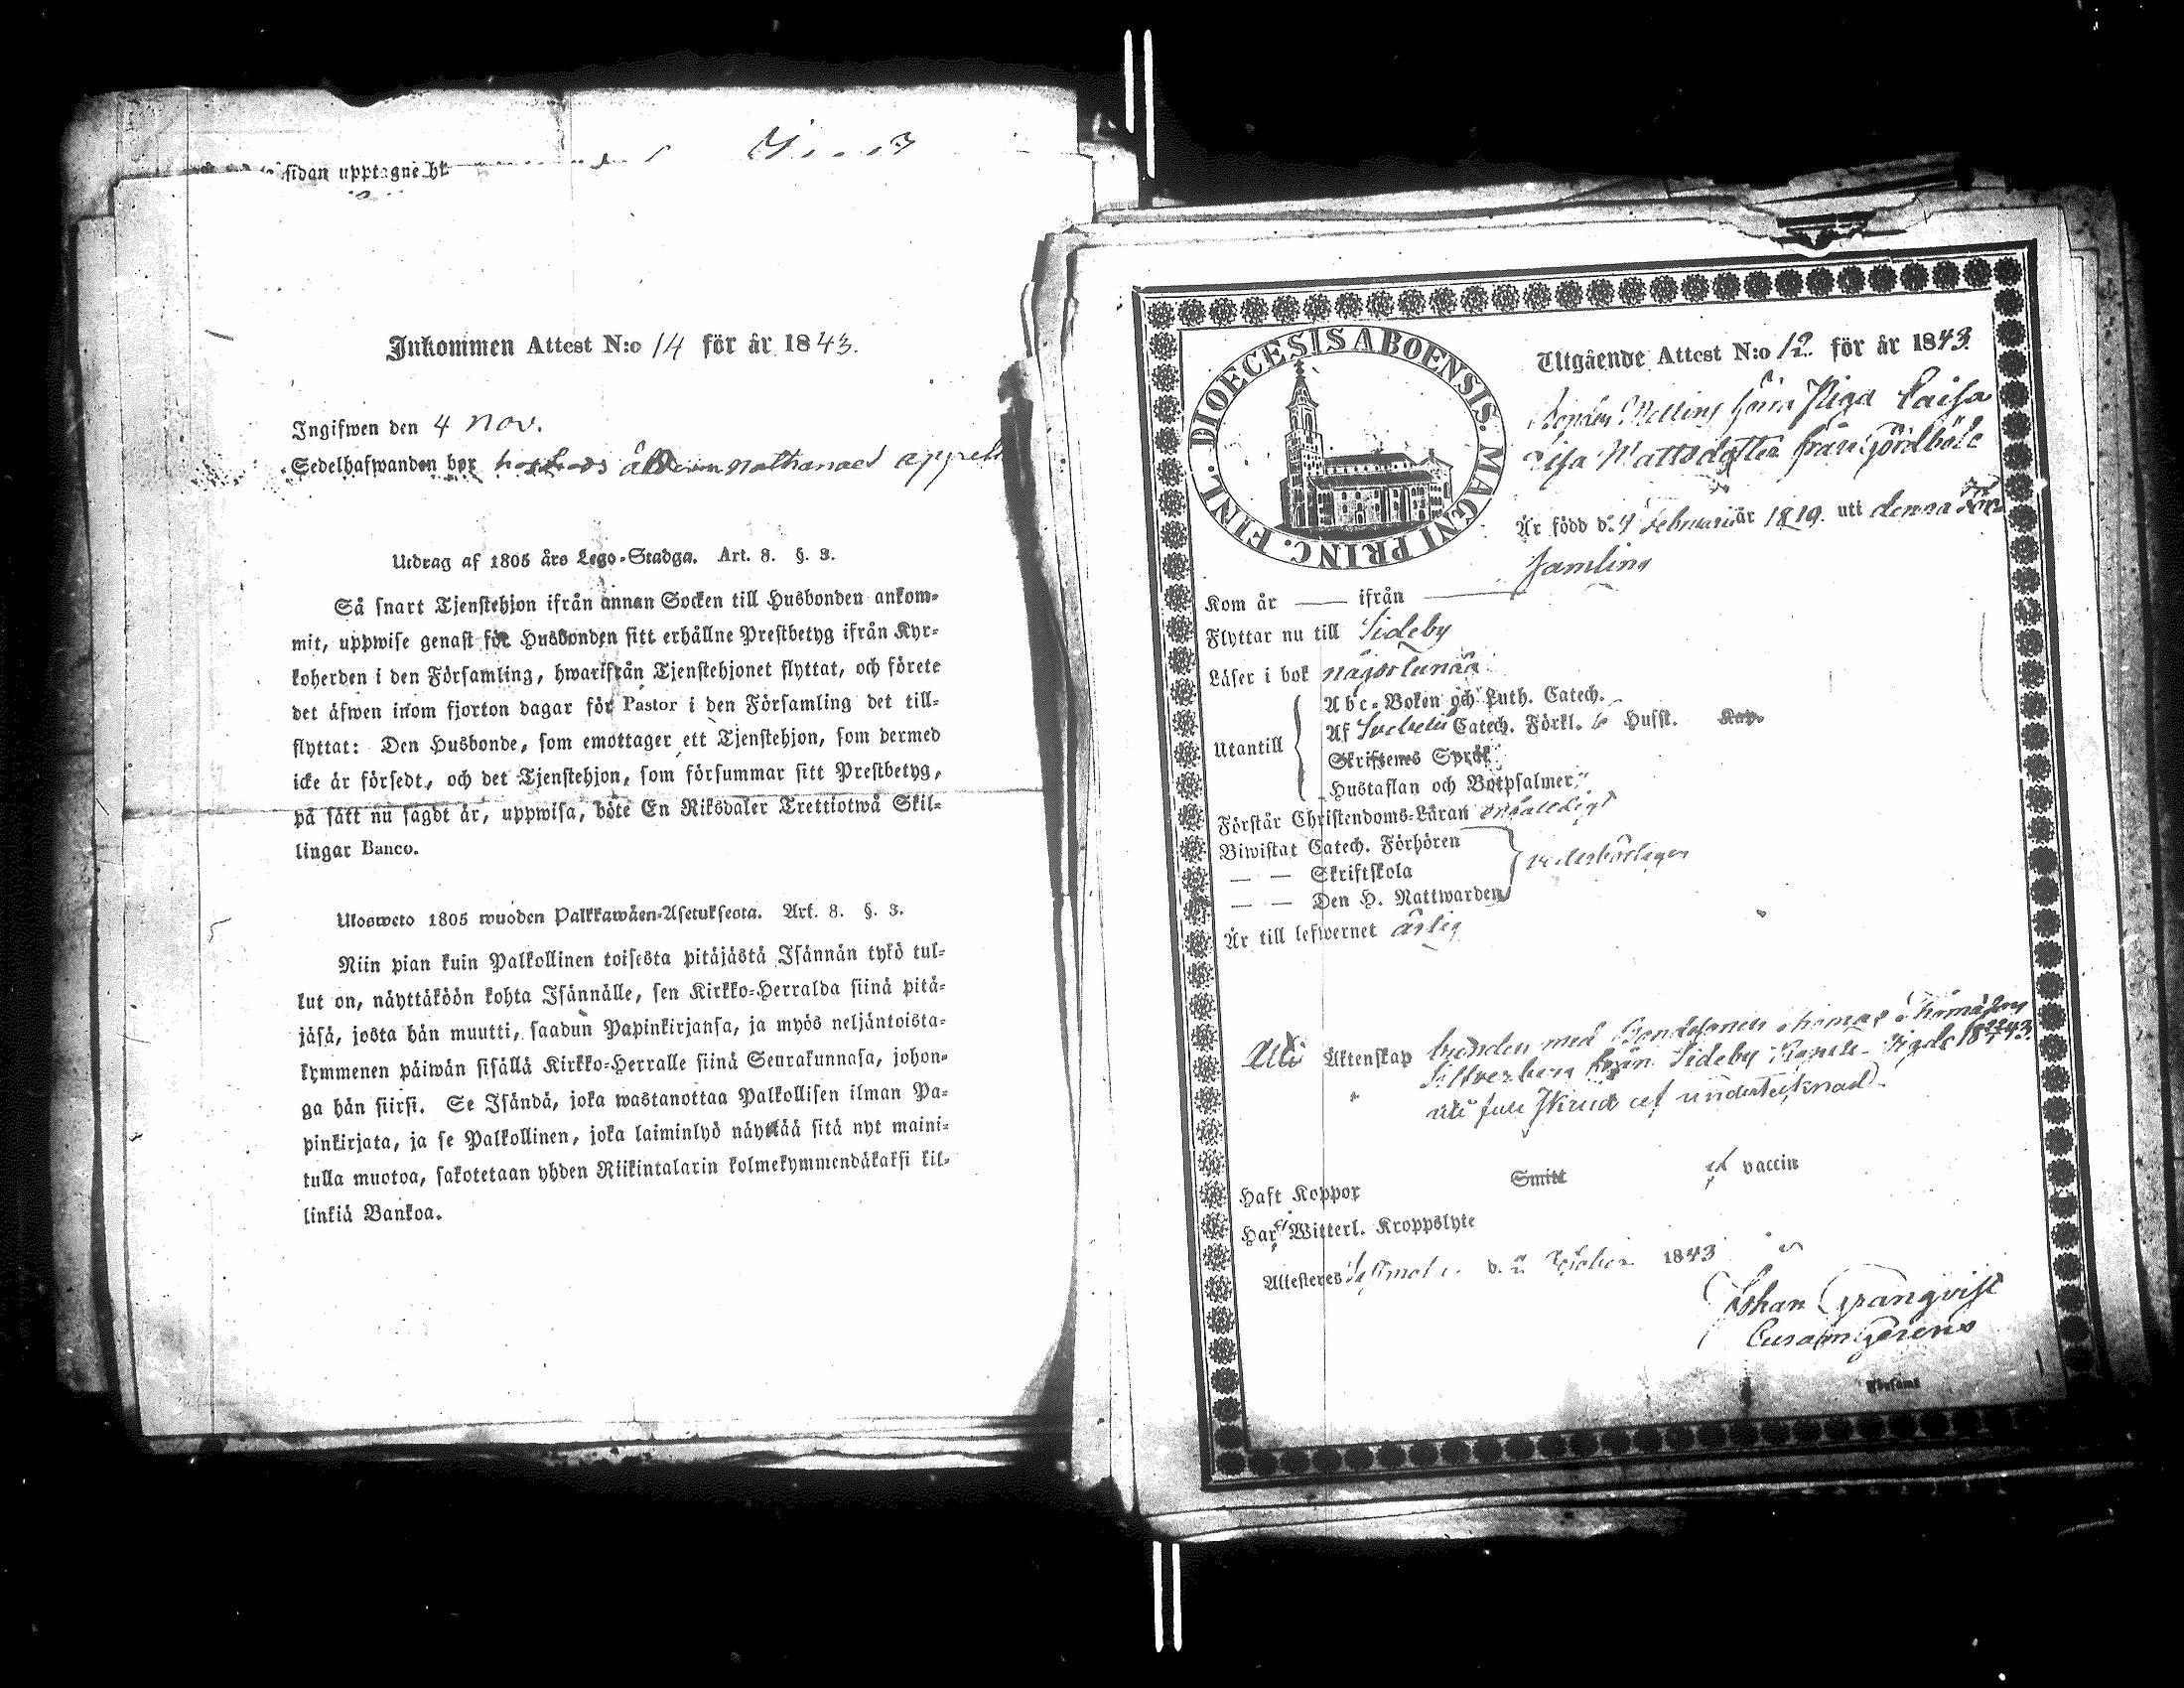 sidan upptagne
Inkommen Attest N:o 14 för år 1843.
Ingifwen den 4 Nov.
Sedelhafwanden bor hos Nathanael
Utdrag af 1805 års Lego-Stadga. Art. 8. §. 3.
Så snart Tjenstehjon ifrån annan Socken till Husbonden ankom-
mit, uppwise genast för Husbonden sitt erhållne Prestbetyg ifrån Kyr-
koherden i den Församling, hwarifrån Tjenstehjonet flyttat, och förete
det äfwen inom fjorton dagar för Pastor i den Församling det till-
flyttat: Den Husbonde, som emottager ett Tjenstehjon, som dermed
icke är försedt, och det Tjenstehjon, som försummar sitt Prestbetyg,
på sätt nu sagdt är, uppwisa, böte En Riksdaler Trettiotwå Skil-
lingar Banco.
Ulosweto 1805 wuoden Palkkawäen-Asetuksesta. Art. 8. §. 3.
Niin pian kuin Palkollinen toisesta pitäjästä Isännän tykö tul-
lut on, näyttäköön kohta Isännälle, sen Kirkko-Herralda siinä pitä-
jäsä, josta hän muutti, saadun Papinkirjansa, ja myös neljäntoista-
kymmenen päiwän sisällä Kirkko-Herralle siinä Seurakunnasa, johon-
ga hän siirsi. Se Isändä, joka wastanottaa Palkollisen ilman Pa-
pinkirjata, ja se Palkollinen, joka laiminlyö näyttää sitä nyt maini-
tulla muotoa, sakotetaan yhden Riikintalarin kolmekymmendäkaksi kil-
linkiä Bankoa.
DIOECESIS ABOENSIS. MAGNI PRINC. FINL.
Utgående Attest N:o 12 för år 1843.
Piga Caisa
Lisa Mattsdotter från
Är född d. 4 Februari år 1819. uti denna För-
samling
Kom år — ifrån —
Flyttar nu till Sideby
Läser i bok någorlunda
Utantill
Abc-Boken och Luth. Catech.
Af Svebelii Catech. Förkl. Husst. Kap.
Skriftenes Språk
Hustaflan och Botpsalmer
Förstår Christendoms-Läran enfaldigt
Biwistat Catech. Förhören
— — Skriftskola
— — Den H. Nattwarden
vederbörligen
Är till lefwernet ärlig
Till Äktenskap bunden med Bondesonen Thomas Thomasson
Silfverberg från Sideby 1843.
undertecknad
Haft Koppor Smitt ej vaccin
Har ej Witterl. Kroppslyte
Attesteres d. 2 October 1843
Johan Granqvist
Curam Gerens
Församl